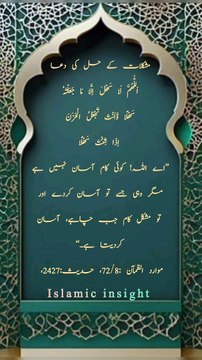 مشکلات کے حل کی دعا
اَللّٰهُمَّ لَا سَهْلَ اِلَّا مَا جَعَلْتَهٗ
سَهْلًا وَّاَنْتَ تَجْعَلُ الْحَزْنَ
اِذَا شِئْتَ سَهْلًا
"اے اللہ! کوئی کام آسان نہیں ہے
مگر وہی جسے تو آسان کردے اور
تو مشکل کام جب چاہے، آسان
کردیتا ہے۔"
موارد الظمآن :72/8، حدیث:2427،
Islamic insight